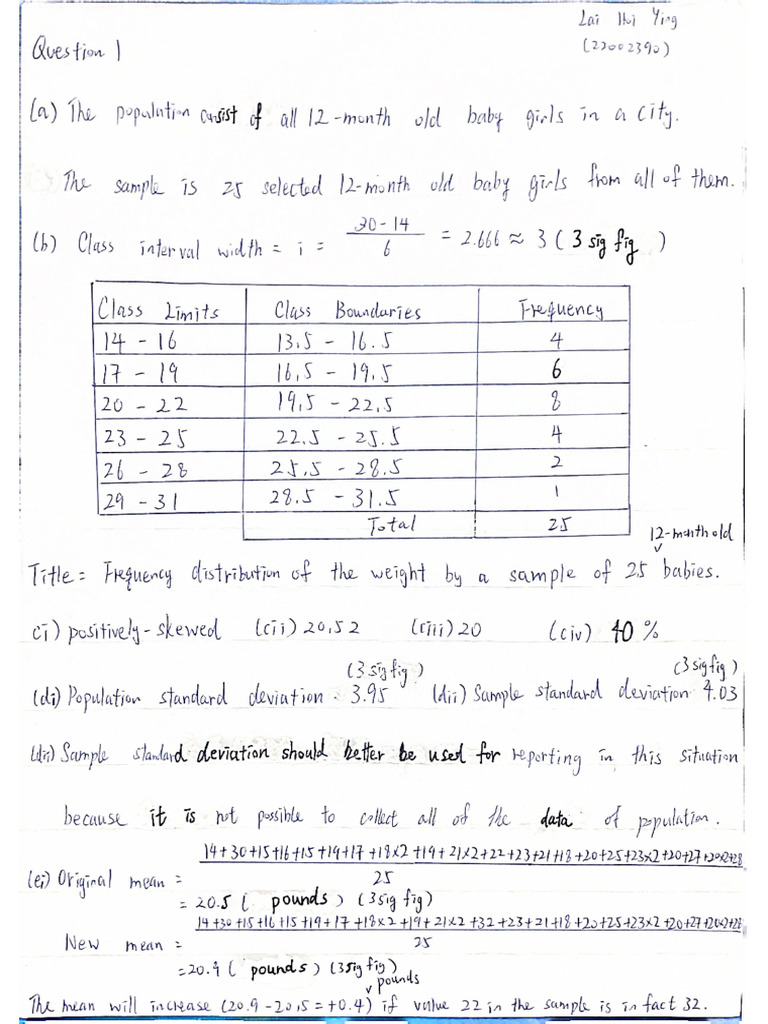 Lai Hui Ying
Question 1
(22002390)
(a) The population consist of all 12-month old baby girls in a city.
The sample is 25 selected 12-month old baby girls from all of them.
(b) Class interval width = i = 30-14 / 6 = 2.666 ≈ 3 (3 sig fig)
Class Limits Class Boundaries Frequency
14 - 16 13.5 - 16.5 4
17 - 19 16.5 - 19.5 6
20 - 22 19.5 - 22.5 8
23 - 25 22.5 - 25.5 4
26 - 28 25.5 - 28.5 2
29 - 31 28.5 - 31.5 1
Total 25
12-month old
Title = Frequency distribution of the weight by a sample of 25 babies.
ci) positively-skewed (cii) 20.52 (ciii) 20 (civ) 40 %
(3 sig fig) (3 sig fig)
(di) Population standard deviation = 3.95 (dii) Sample standard deviation 4.03
(diii) Sample standard deviation should better be used for reporting in this situation
because it is not possible to collect all of the data of population.
14+30+15+16+15+19+17+18×2+19+21×2+22+23+21+18+20+25+23×2+20+27+20×2+28
(ei) Original mean =
25
= 20.5 ( pounds ) (3 sig fig)
14+30+15+16+15+19+17+18×2+19+21×2+32+23+21+18+20+25+23×2+20+27+20×2+28
New mean =
25
= 20.9 ( pounds ) (3 sig fig)
pounds
The mean will increase (20.9 - 20.5 = +0.4) if value 22 in the sample is in fact 32.